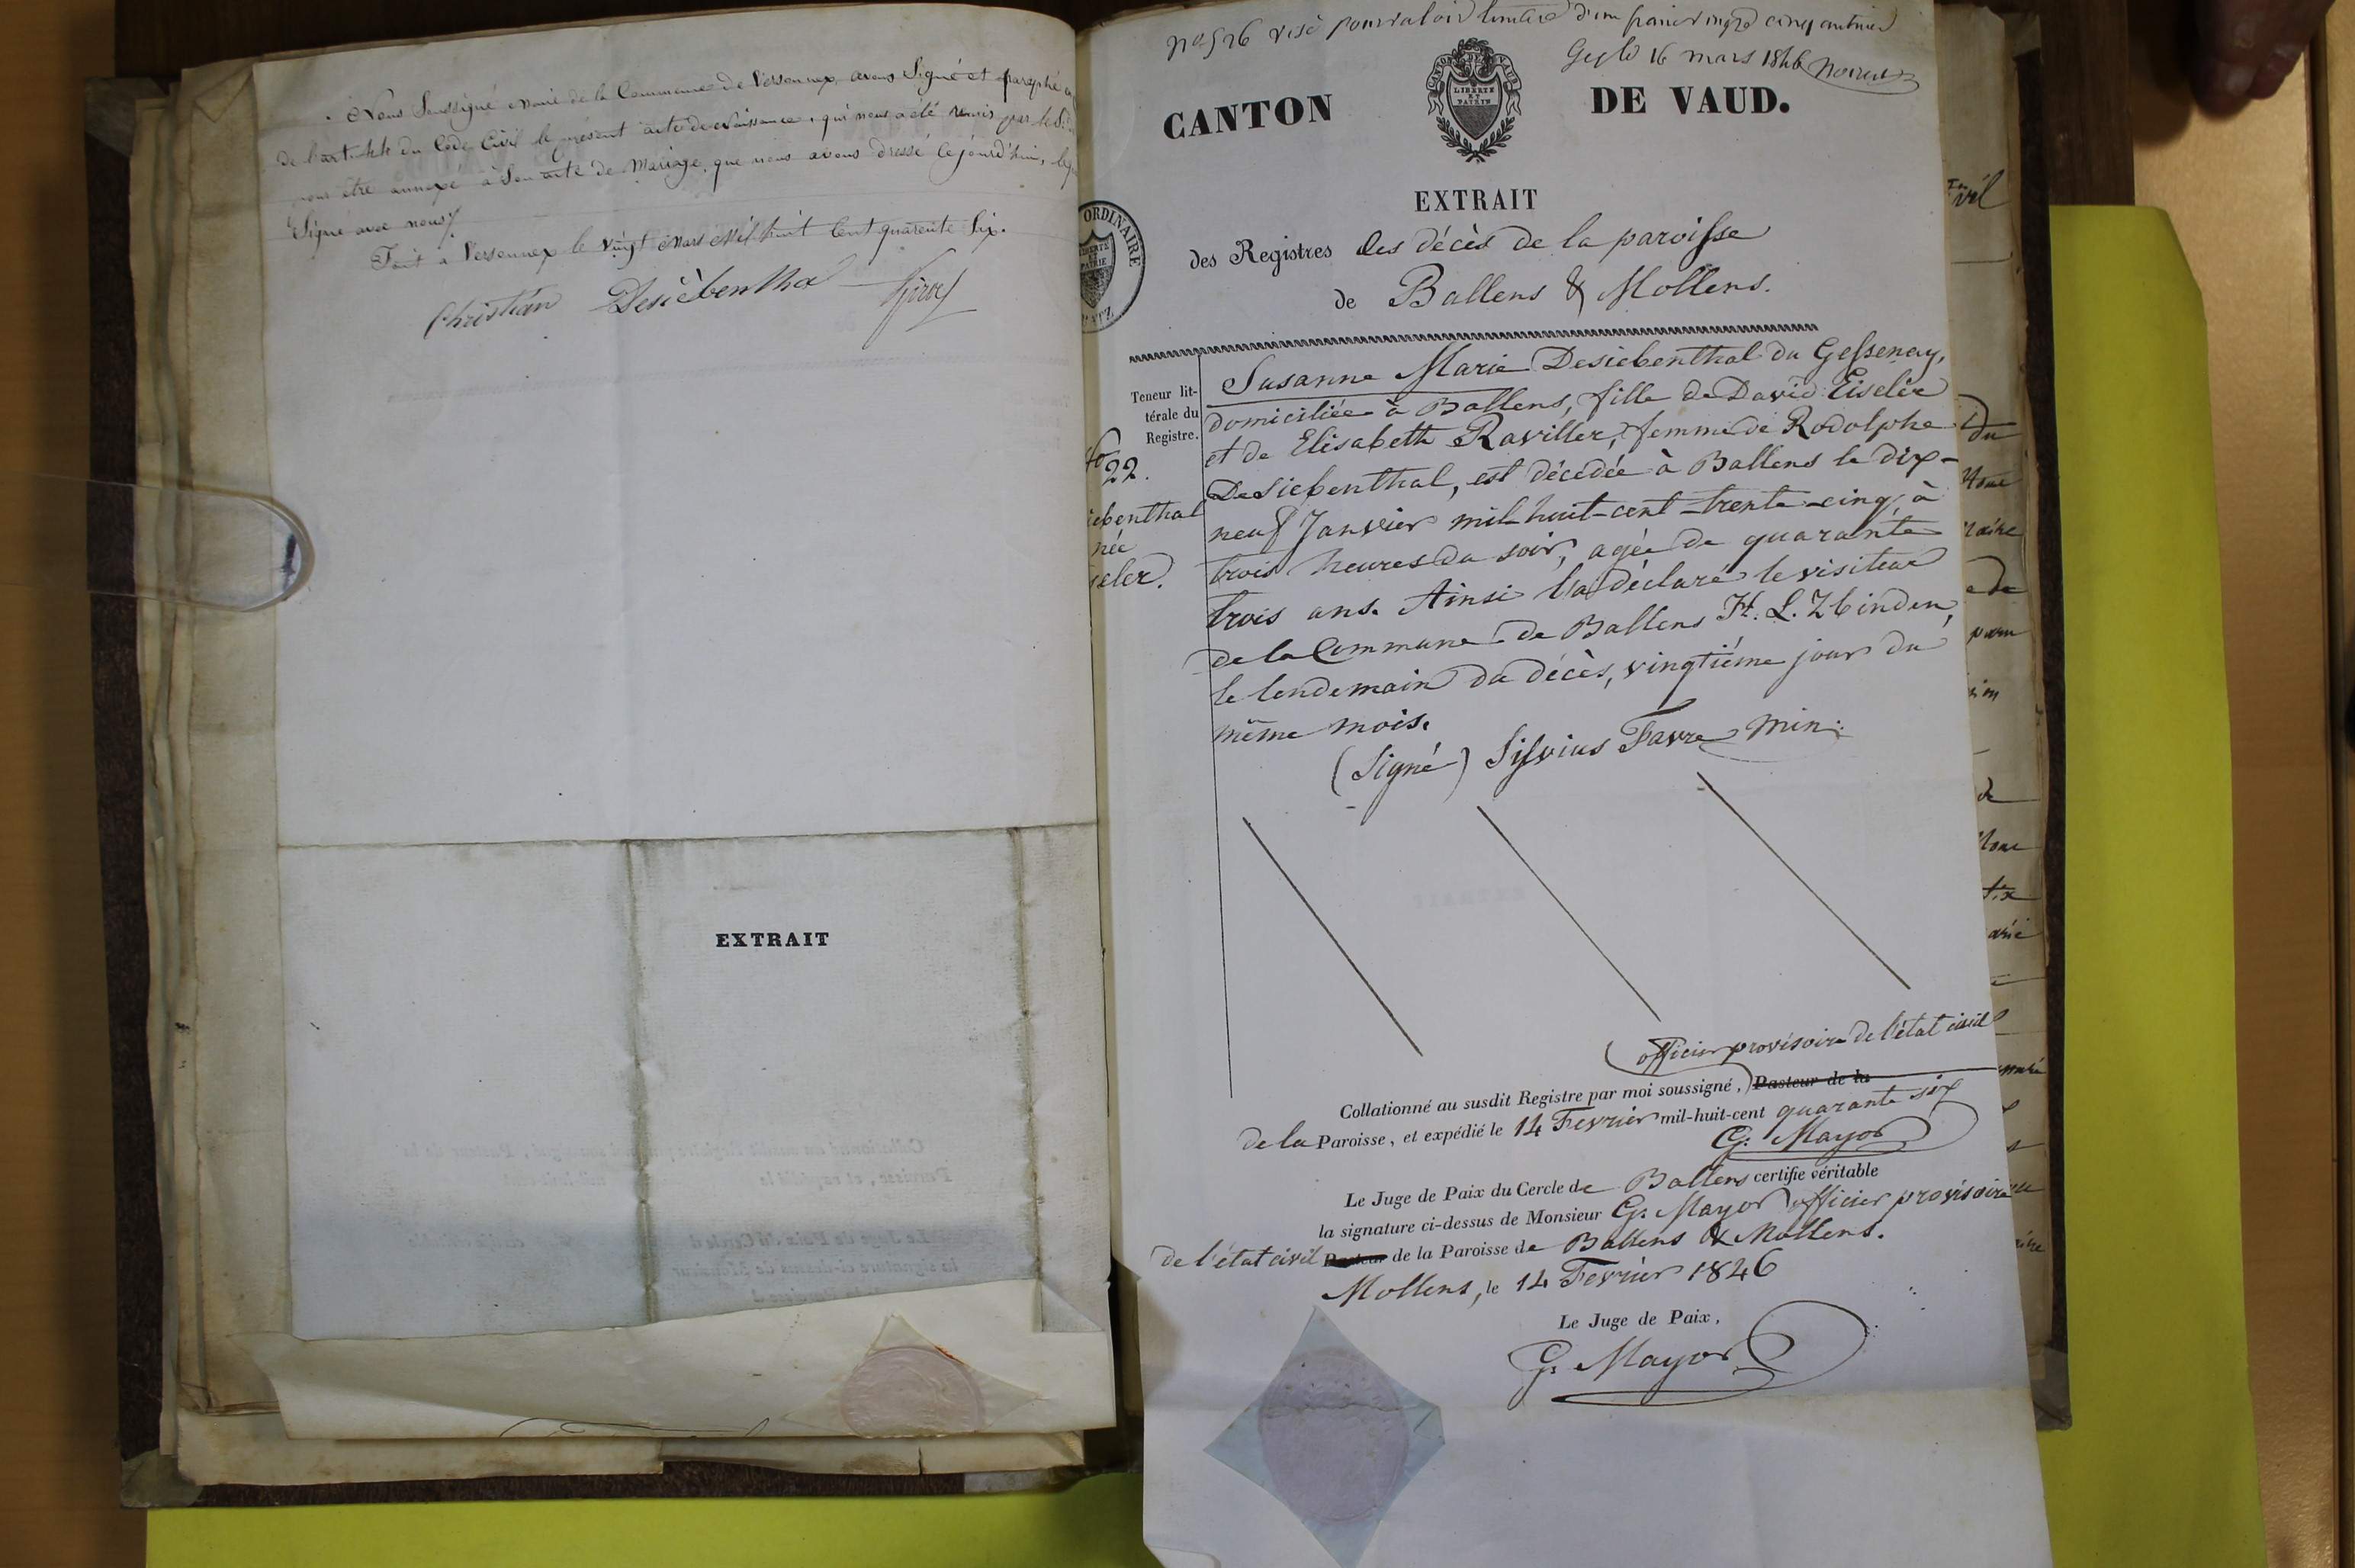 Nous Soussigné Maire de la Commune de Versonnex, avons Signé et paraphé
de l'art. 44 du Code Civil le présent acte de Naissance, qui nous a été remis par le S.
pour être annexé à Son acte de Mariage, que nous avons dressé Cejourd'hui,
Signé avec nous
Fait à Versonnex le vingt Mars Mil huit Cent quarente Six.
Christian Desiebenthal Girod
EXTRAIT
No 526 visé pour valoir timbre d'un franc vingt cinq centimes
Gex le 16 mars 1846
CANTON DE VAUD.
CANTON DE VAUD
LIBERTÉ
ET
PATRIE
ORDINAIRE
LIBERTÉ
ET
PATRIE
EXTRAIT
des Registres des décès de la paroisse
de Ballens & Mollens.
Teneur lit-
térale du
Registre.
fo
22.
iebenthal
née
seler.
Susanne Marie Desiebenthal du Gessenay,
domiciliée à Ballens, fille de David Eiseler
et de Elisabeth Raviller, femme de Rodolphe
Desiebenthal, est décédée à Ballens le dix-
neuf Janvier mil-huit-cent-trente-cinq, à
trois heures du soir, agée de quarante
trois ans. Ainsi l'a déclaré le visiteur
de la Commune de Ballens H. L. Zbinden,
le lendemain du décès, vingtième jour du
même mois.
(Signé) Sylvius Favre Min:
officier provisoire de l'état civil
Collationné au susdit Registre par moi soussigné, Pasteur de la
de la Paroisse, et expédié le 14 Fevrier mil-huit-cent quarante six
G. Mayor
Le Juge de Paix du Cercle de Ballens certifie véritable
la signature ci-dessus de Monsieur G. Mayor officier provisoire
de l'état civil Pasteur de la Paroisse de Ballens & Mollens.
Mollens, le 14 Fevrier 1846
Le Juge de Paix,
G. Mayor